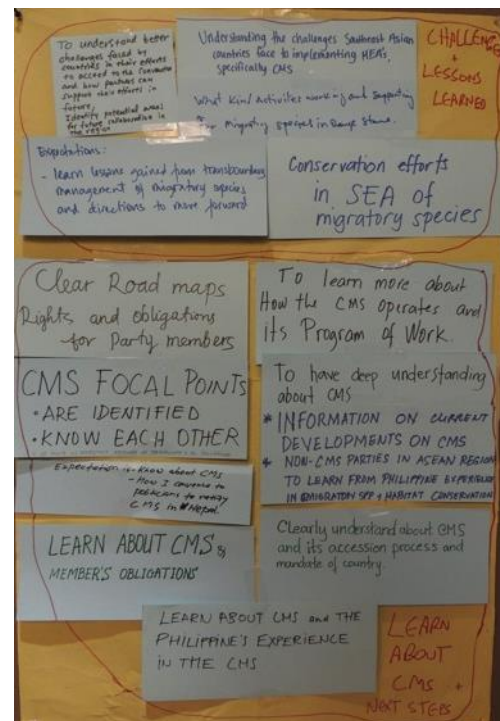 To understand better
challenges faced by
countries in their efforts
to accede to the Convention
and how partners can
support their efforts in
future,
Identify potential areas
for future collaboration in
the region
Understanding the challenges Southeast Asian
countries face to implementing MEAs,
specifically CMS
What kind activities working and supporting
for migratory species in Range States.
CHALLENGES
+
LESSONS
LEARNED
Expectations:
- learn lessons gained from transboundary
management of migratory species
and directions to move forward
Conservation efforts
in SEA of
migratory species
Clear Road maps
Rights and obligations
for Party members
To learn more about
How the CMS operates and
its Program of Work.
CMS FOCAL POINTS
• ARE IDENTIFIED
• KNOW EACH OTHER
To have deep understanding
about CMS
* INFORMATION ON CURRENT
DEVELOPMENTS ON CMS
* NON-CMS PARTIES IN ASEAN REGION
TO LEARN FROM PHILIPPINE EXPERIENCE
IN MIGRATORY SPP + HABITAT CONSERVATION
Expectation is - Know about CMS
- How I convince to
politicians to ratify
CMS in Nepal.
LEARN ABOUT CMS &
MEMBER'S OBLIGATIONS
Clearly understand about CMS
and its accession process and
mandate of country.
LEARN ABOUT CMS and THE
PHILIPPINE'S EXPERIENCE
IN THE CMS
LEARN
ABOUT
CMS +
NEXT STEPS